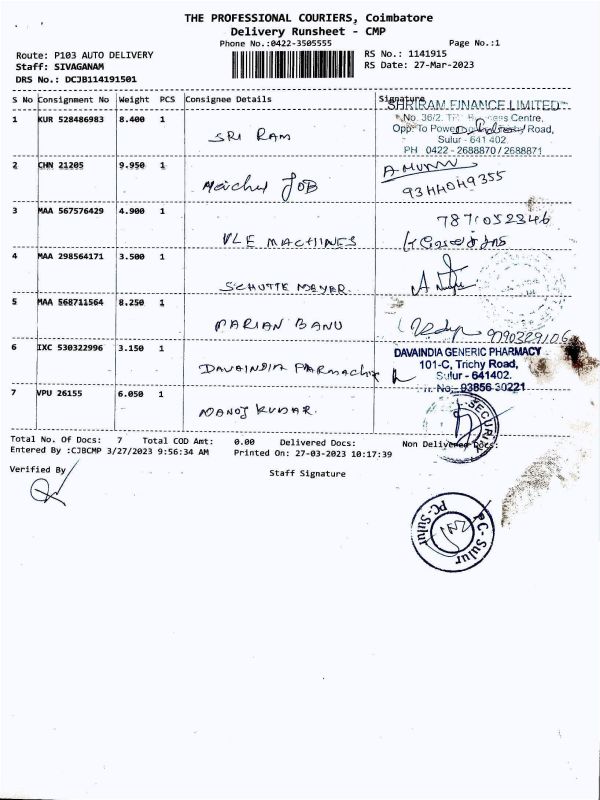 THE PROFESSIONAL COURIERS, Coimbatore
Delivery Runsheet - CMP
Phone No.:0422-3505555
Page No.:1
Route: P103 AUTO DELIVERY
Staff: SIVAGANAM
DRS No.: DCJB114191501
RS No.: 1141915
RS Date: 27-Mar-2023
S No Consignment No Weight PCS Consignee Details Signature
1 KUR 528486983 8.400 1 SRI RAM
SHRIRAM FINANCE LIMITED
No. 36/2, Centre,
Opp. To Power Road,
Sulur - 641 402.
PH 0422 - 2688870 / 2688871
2 CHN 21205 9.950 1 JOB
9344049355
3 MAA 567576429 4.900 1 VLE MACHINES
7871052346
4 MAA 298564171 3.500 1 SCHUTTE MEYER.
5 MAA 568711564 8.250 1 MARIAN BANU
9790329106
6 IXC 530322996 3.150 1 DAVAINDIA
DAVAINDIA GENERIC PHARMACY
101-C, Trichy Road,
Sulur - 641402.
No: 93856 30221
7 VPU 26155 6.050 1 MANOJ KUMAR.
SECURITY
Total No. Of Docs: 7 Total COD Amt: 0.00 Delivered Docs: Non Delivered Docs:
Entered By :CJBCMP 3/27/2023 9:56:34 AM Printed On: 27-03-2023 10:17:39
Verified By
Staff Signature
PC-Sulur
PC-Sulur